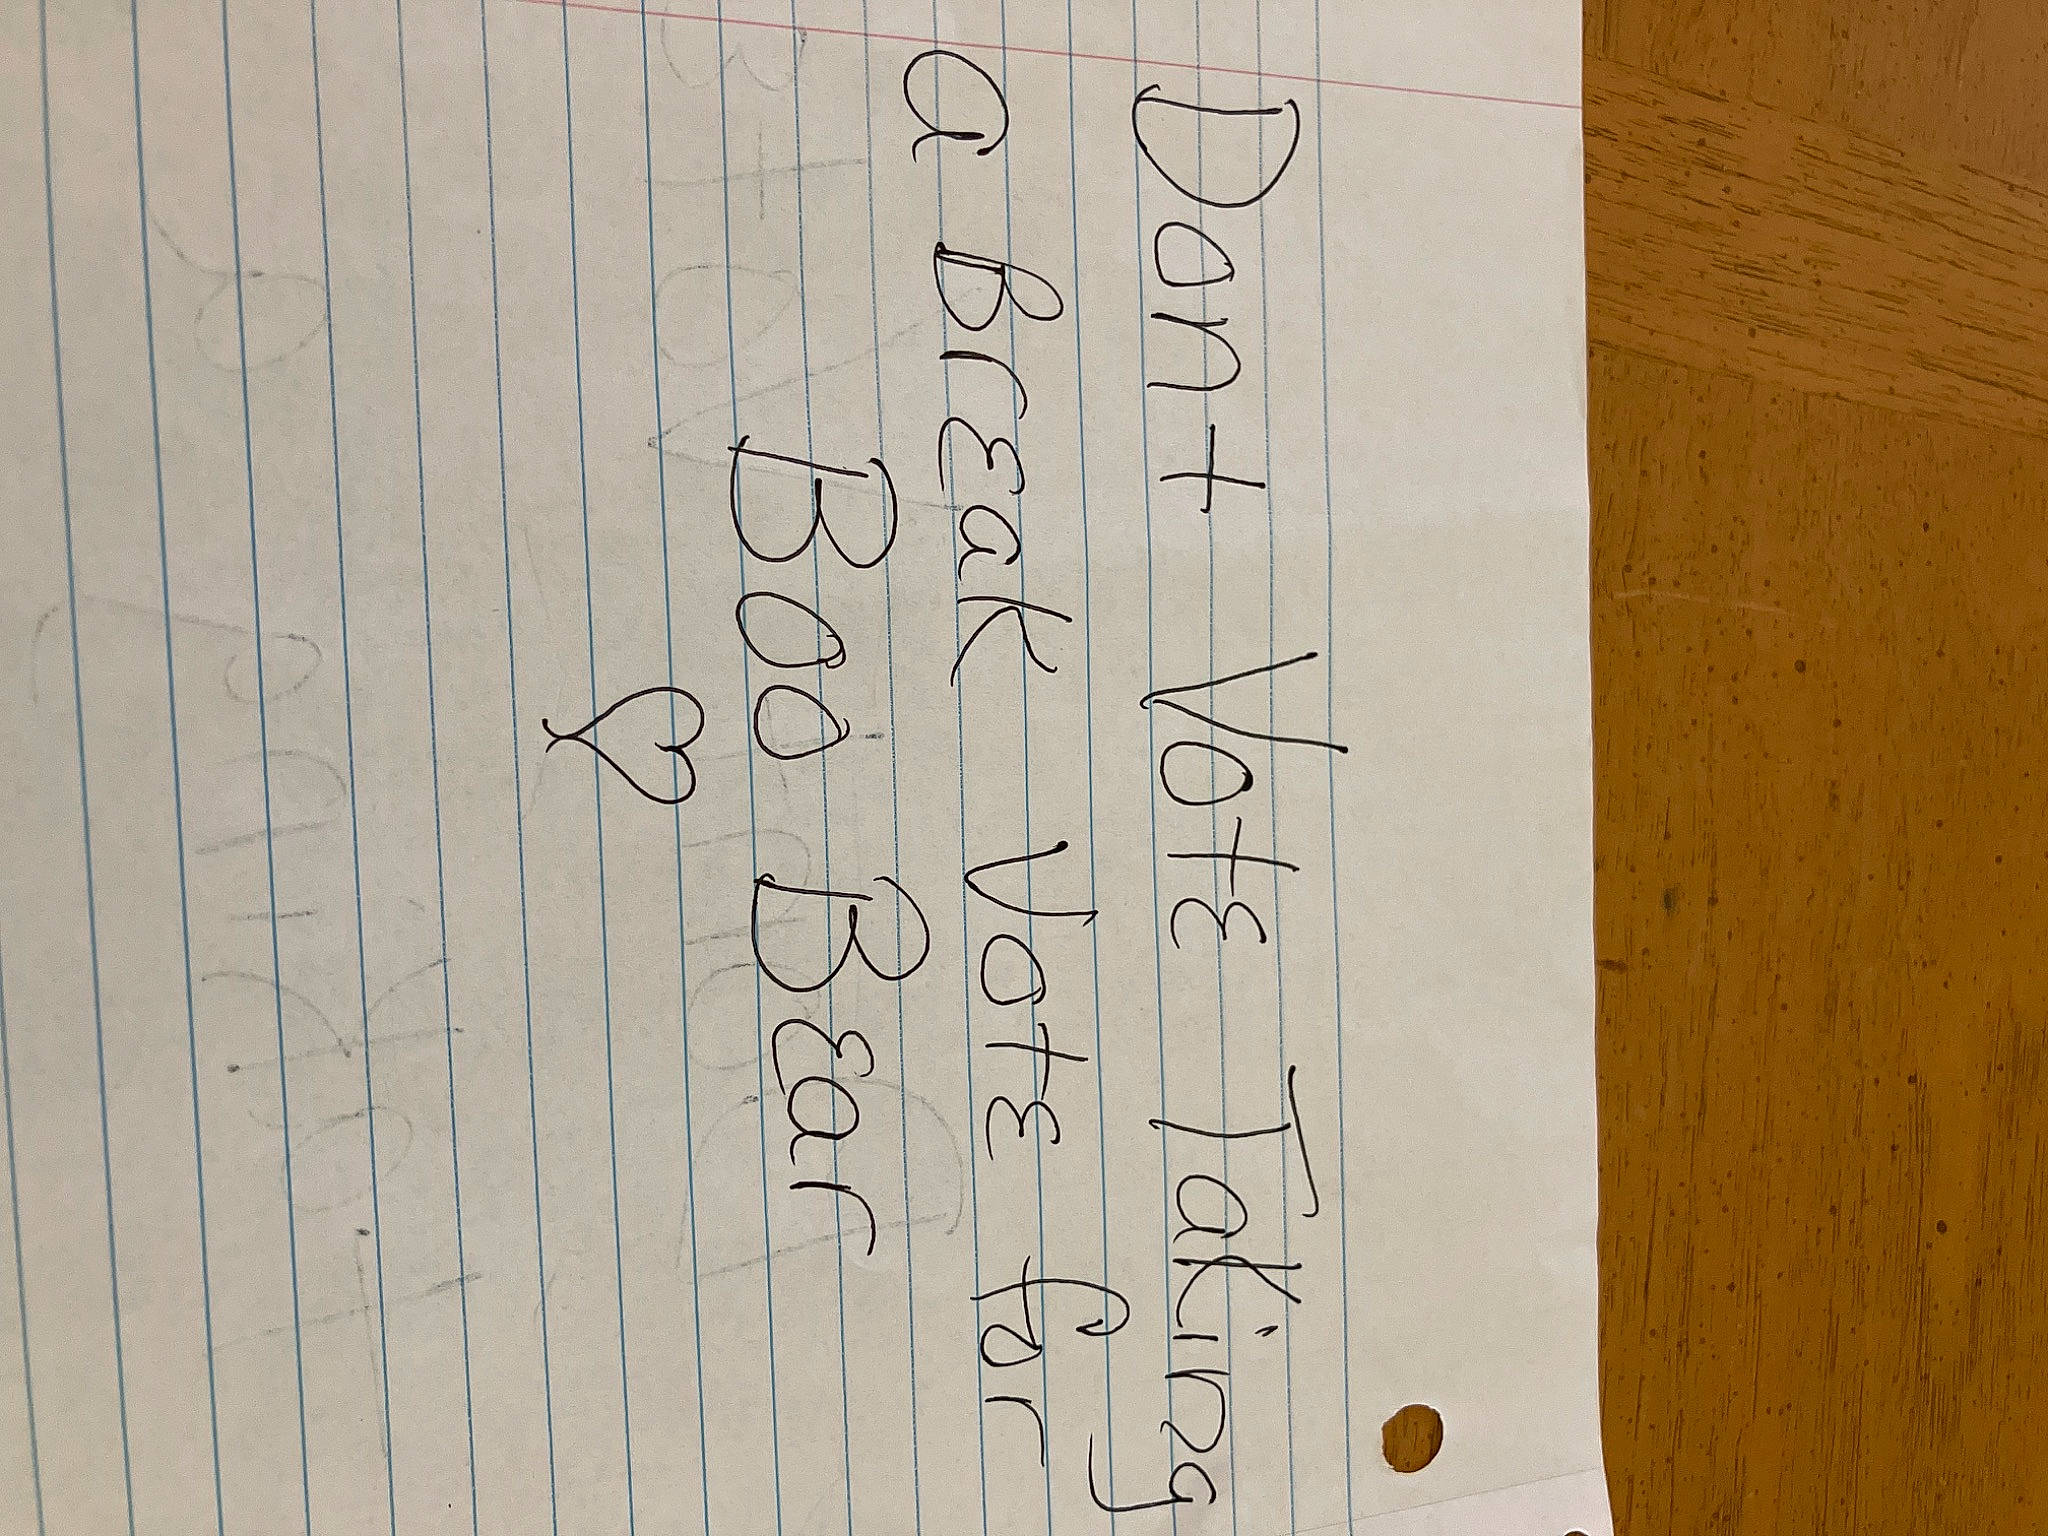 Dont Vote Taking
a Break Vote for
Boo Bear